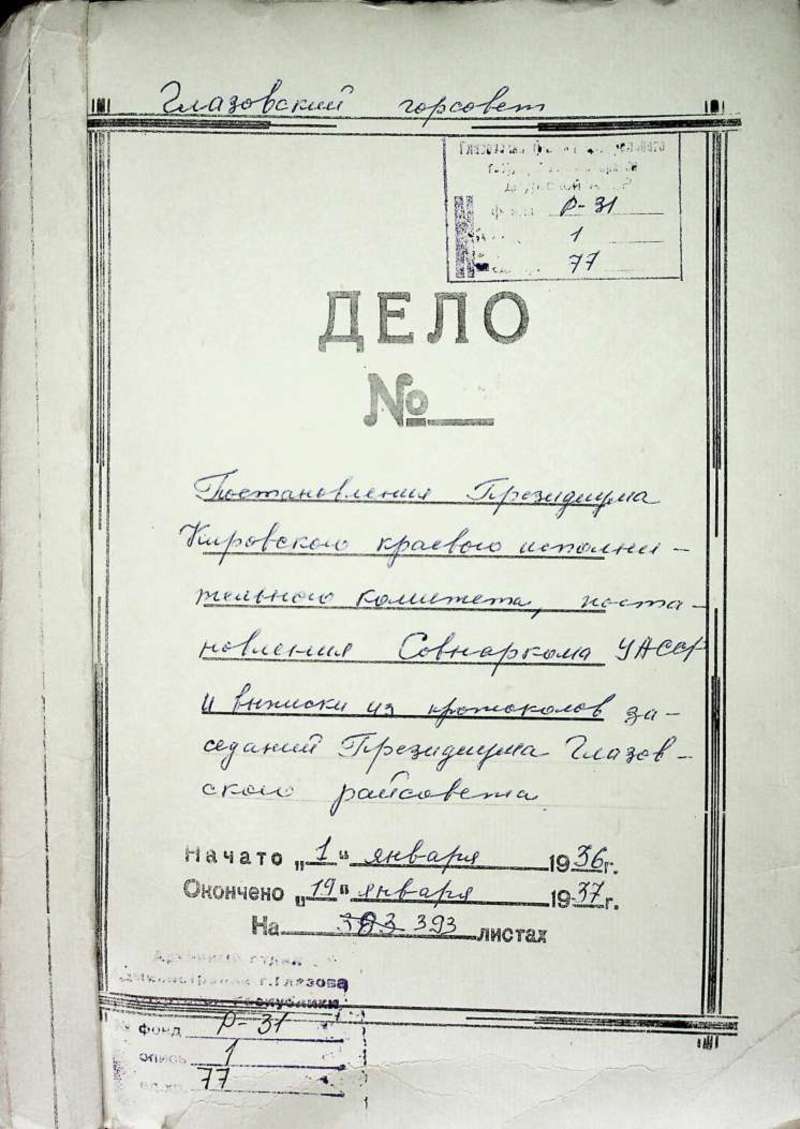 Глазовский горсовет
Р-31
1
77
ДЕЛО
№
Постановления Президиума
Кировского краевого исполни-
тельного комитета, поста-
новления Совнаркома УАССР
и выписки из протоколов за-
седаний Президиума Глазов-
ского райсовета
Начато „1" января 1936г.
Окончено „19" января 1937г.
На 383 393 листах
г.Глазова
Республики
№ фонд Р-31
опись 1
ед.хр. 77